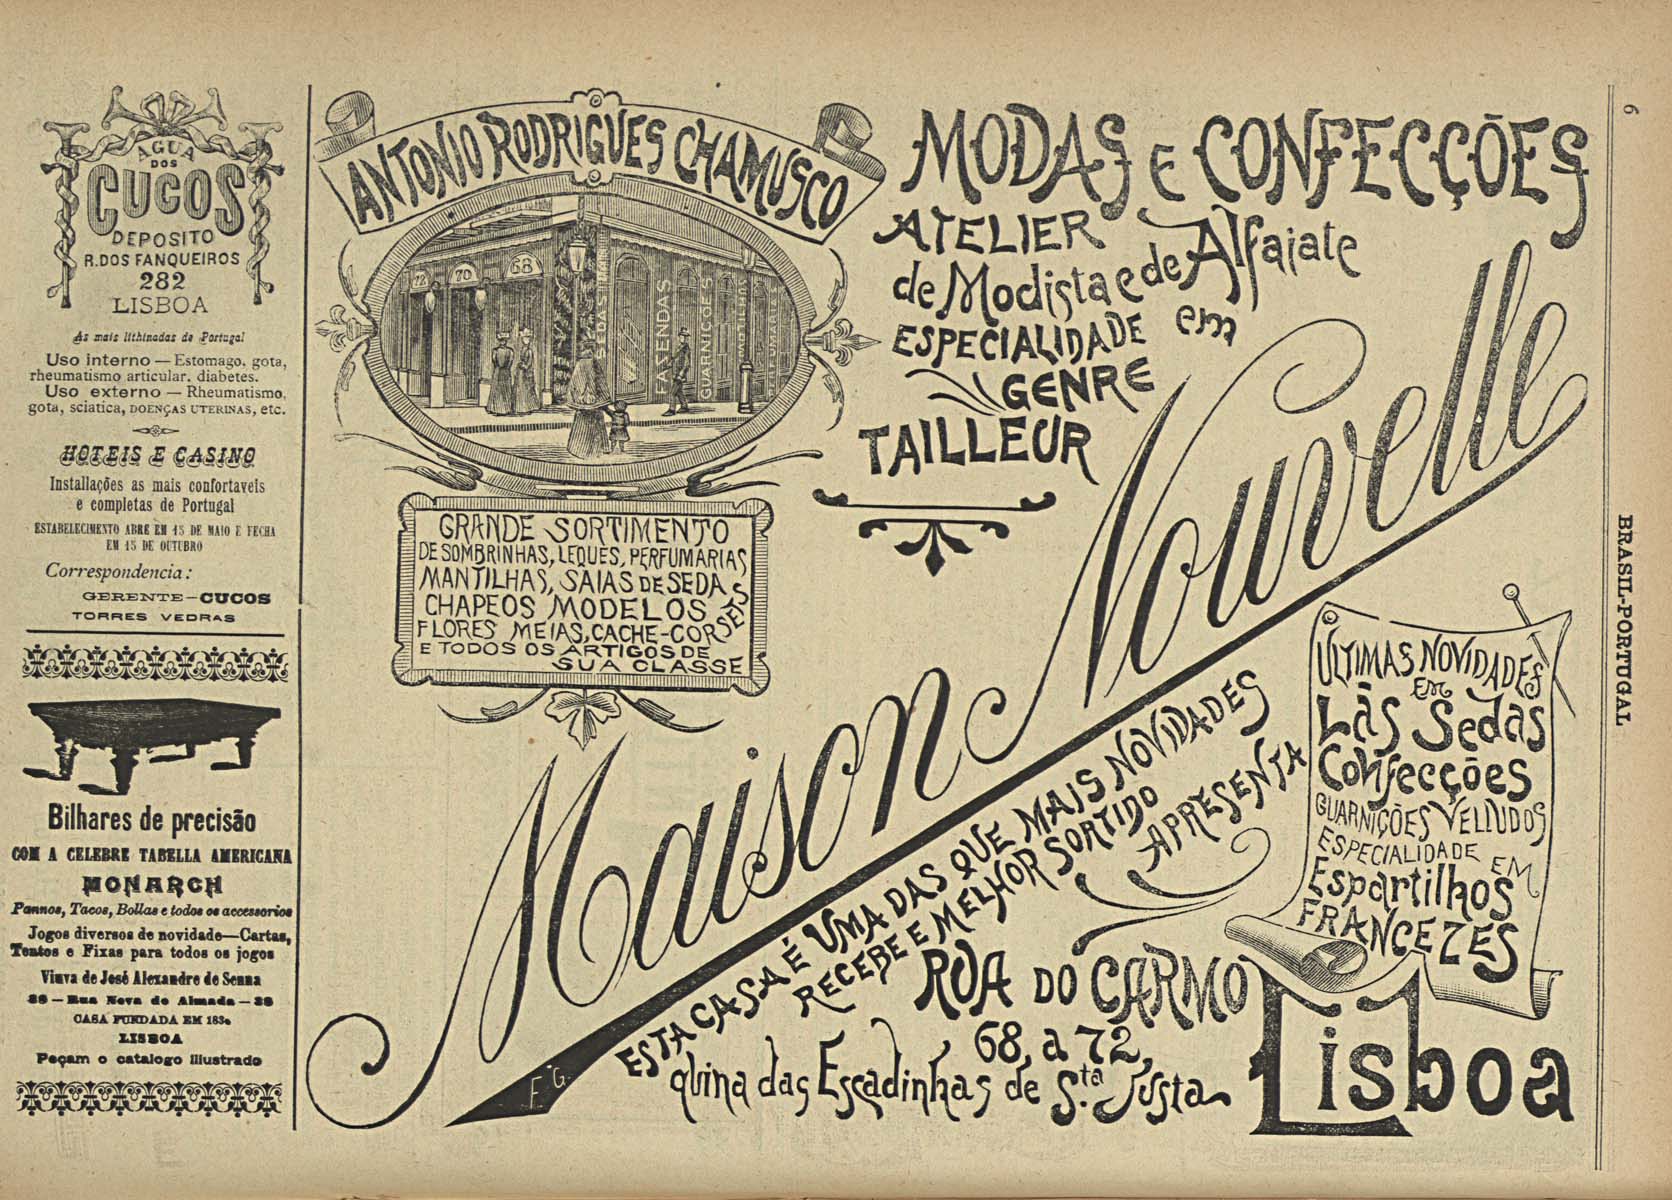 AGUA
DOS
CUCOS
DEPOSITO
R. DOS FANQUEIROS
282
LISBOA
As mais lithinadas de Portugal
Uso interno — Estomago, gota,
rheumatismo articular, diabetes.
Uso externo — Rheumatismo,
gota, sciatica, DOENÇAS UTERINAS, etc.
HOTEIS E CASINO
Installações as mais confortaveis
e completas de Portugal
ESTABELECIMENTO ABRE EM 15 DE MAIO E FECHA
EM 15 DE OUTUBRO
Correspondencia:
GERENTE—CUCOS
TORRES VEDRAS
Bilhares de precisão
COM A CELEBRE TABELLA AMERICANA
MONARCH
Pannos, Tacos, Bollas e todos os accessorios
Jogos diversos de novidade—Cartas,
Tentos e Fixas para todos os jogos
Viuva de José Alexandre de Senna
36 — Rua Nova do Almada — 38
CASA FUNDADA EM 1834
LISBOA
Peçam o catalogo illustrado
ANTONIO RODRIGUES CHAMUSCO
72
70
68
SEDAS
FAZENDAS
GUARNIÇÕES
ESPARTILHOS
PERFUMARIAS
GRANDE SORTIMENTO
DE SOMBRINHAS, LEQUES, PERFUMARIAS
MANTILHAS, SAIAS DE SEDA
CHAPEOS MODELOS
FLORES MEIAS, CACHE-CORSETS
E TODOS OS ARTIGOS DE
SUA CLASSE
MODAS E CONFECÇÕES
ATELIER
de Modista e de Alfaiate
em
ESPECIALIDADE
GENRE
TAILLEUR
Maison Nouvelle
F. G.
ESTA CASA É UMA DAS QUE MAIS NOVIDADES
RECEBE E MELHOR SORTIDO
APRESENTA
RUA DO CARMO
68, a 72,
quina das Escadinhas de S.ta Justa
Lisboa
ÚLTIMAS NOVIDADES
EM
Lãs Sedas
Confecções
GUARNIÇÕES VELLUDOS
ESPECIALIDADE EM
Espartilhos
FRANCEZES
6
BRASIL-PORTUGAL